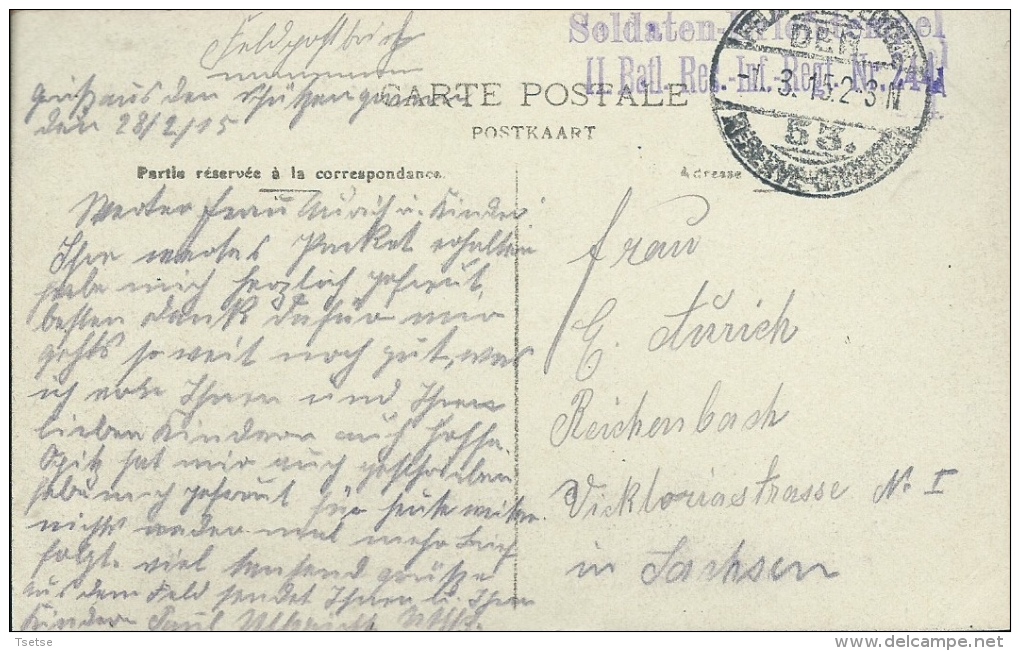 Feldpostbrief
Soldaten-Briefstempel
II. Batl. Res.-Inf.-Regt. Nr. 244
DER
-1.3.15.2-3N
53.
Gruß aus den Schützengraben
den 28/2/15
CARTE POSTALE
POSTKAART
Partie réservée à la correspondance.
Adresse
Werter Frau Aurich u. Kinder
Ihr wertes Packet erhalten
habe mich herzlich gefreut,
besten Dank dafür mir
gehts so weit noch gut, was
ich von Ihnen und Ihren
lieben Kindern auch hoffe.
Spitz hat mir auch geschrieben
hab mich gefreut für heute
nichts mal mehr Brief
folgt. viel tausend Grüße
aus dem Feld sendet Ihnen u. Ihren
Kindern Paul
Frau
E. Aurich
Reichenbach
Vicktoriastrasse No I
in Sachsen
Tsetse
delcampe.net